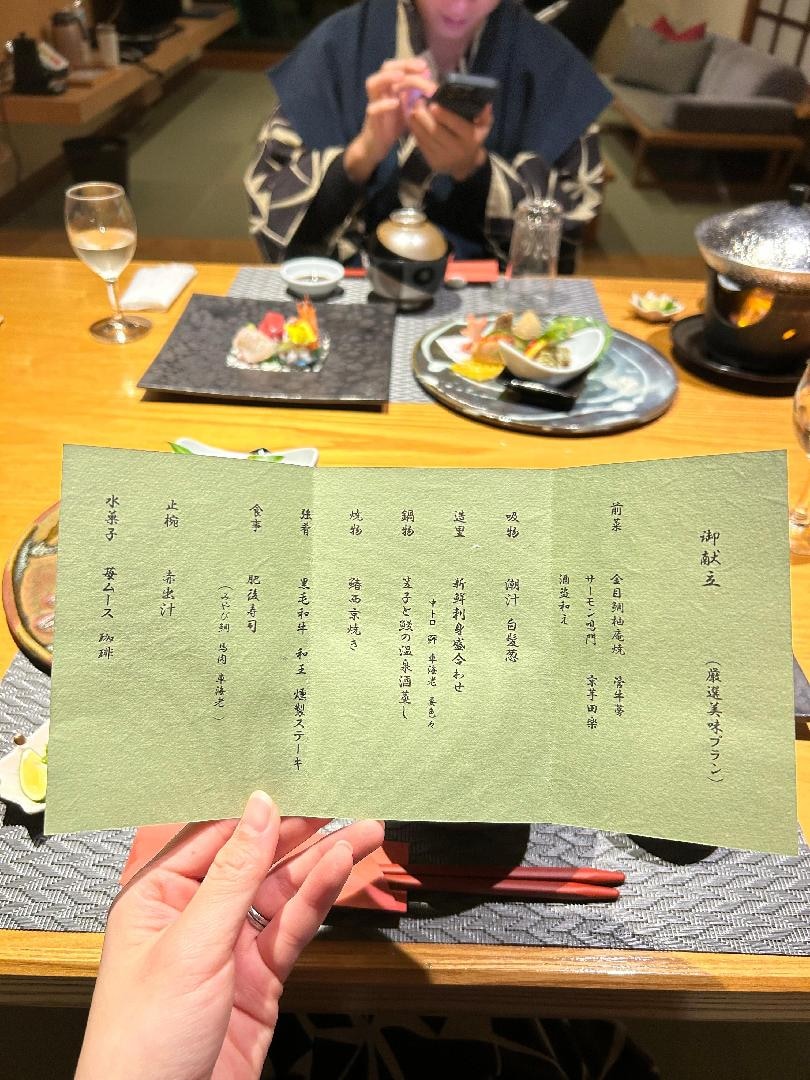 御献立 (厳選美味プラン)
前菜 金目鯛柚庵焼 管牛蒡
サーモン鳴門 京芋田楽
酒盗和え
吸物 潮汁 白髪葱
造里 新鮮刺身盛合わせ
中トロ 鮃 車海老 妻色々
鍋物 茸子と鰒の温泉酒蒸し
焼物 鰆西京焼き
強肴 黒毛和牛 和王 燻製ステーキ
食事 肥後寿司
(みやび鯛 馬肉 車海老)
止椀 赤出汁
水菓子 苺ムース 珈琲